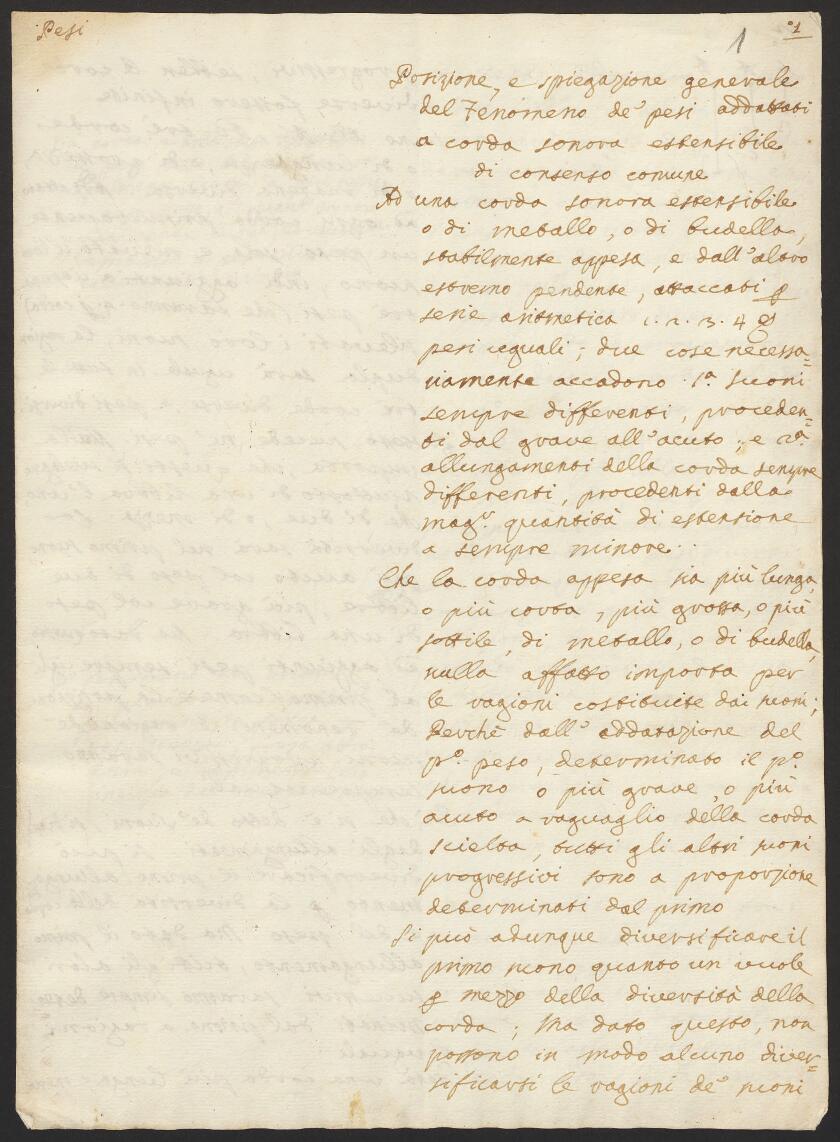 Pesi
1
1
Posizione, e spiegazione generale
del Fenomeno de' pesi addattati
a corda sonora estensibile
di consenso comune
Ad una corda sonora estensibile
o di metallo, o di budella,
stabilmente appesa, e dall'altro
estremo pendente, attaccati p
serie aritmetica 1. 2. 3. 4
pesi uguali; due cose necessa=
riamente accadono. 1.ª Suoni
sempre differenti, proceden=
ti dal grave all'acuto; e 2.ª
allungamenti della corda sempre
differenti, procedenti dalla
mag.r quantità di estensione
a sempre minore.
Che la corda appesa sia più lunga,
o più corta, più grossa, o più
sottile, di metallo, o di budella,
nulla affatto importa per
le ragioni costituite dai suoni;
Perchè dall'addatazione del
p.º peso, determinato il p.º
suono o più grave, o più
acuto a raguaglio della corda
scielta, tutti gli altri suoni
progressivi sono a proporzione
determinati dal primo
Si può adunque diversificare il
primo suono quanto un vuole
p mezzo della diversità della
corda; Ma dato questo, non
possono in modo alcuno diver=
sificarsi le ragioni de' suoni